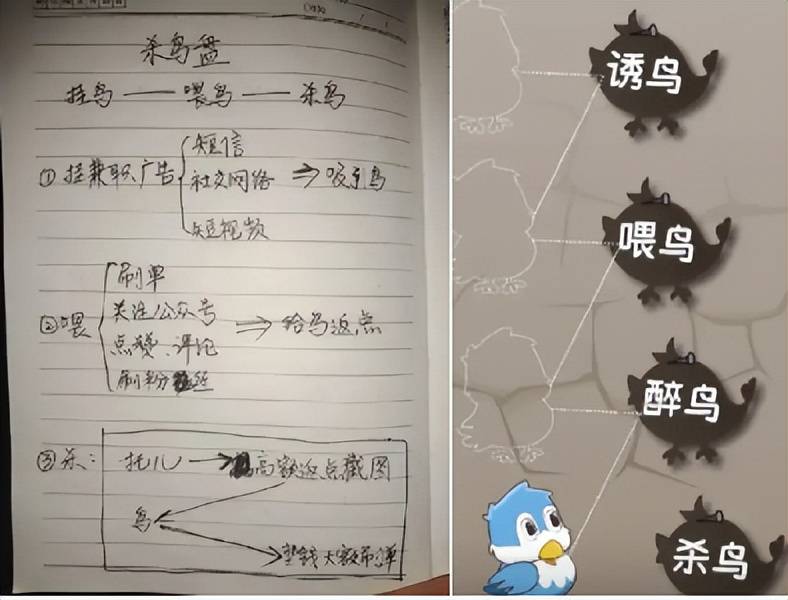 杀鸟盘
挂鸟——喂鸟——杀鸟
①挂兼职广告
短信
社交网络
短视频
⇒吸引鸟
②喂
刷单
关注公众号
点赞、评论
刷粉丝
⇒给鸟返点
③杀:
托儿→高额返点截图
鸟
垫钱大额刷单
诱鸟
喂鸟
醉鸟
杀鸟